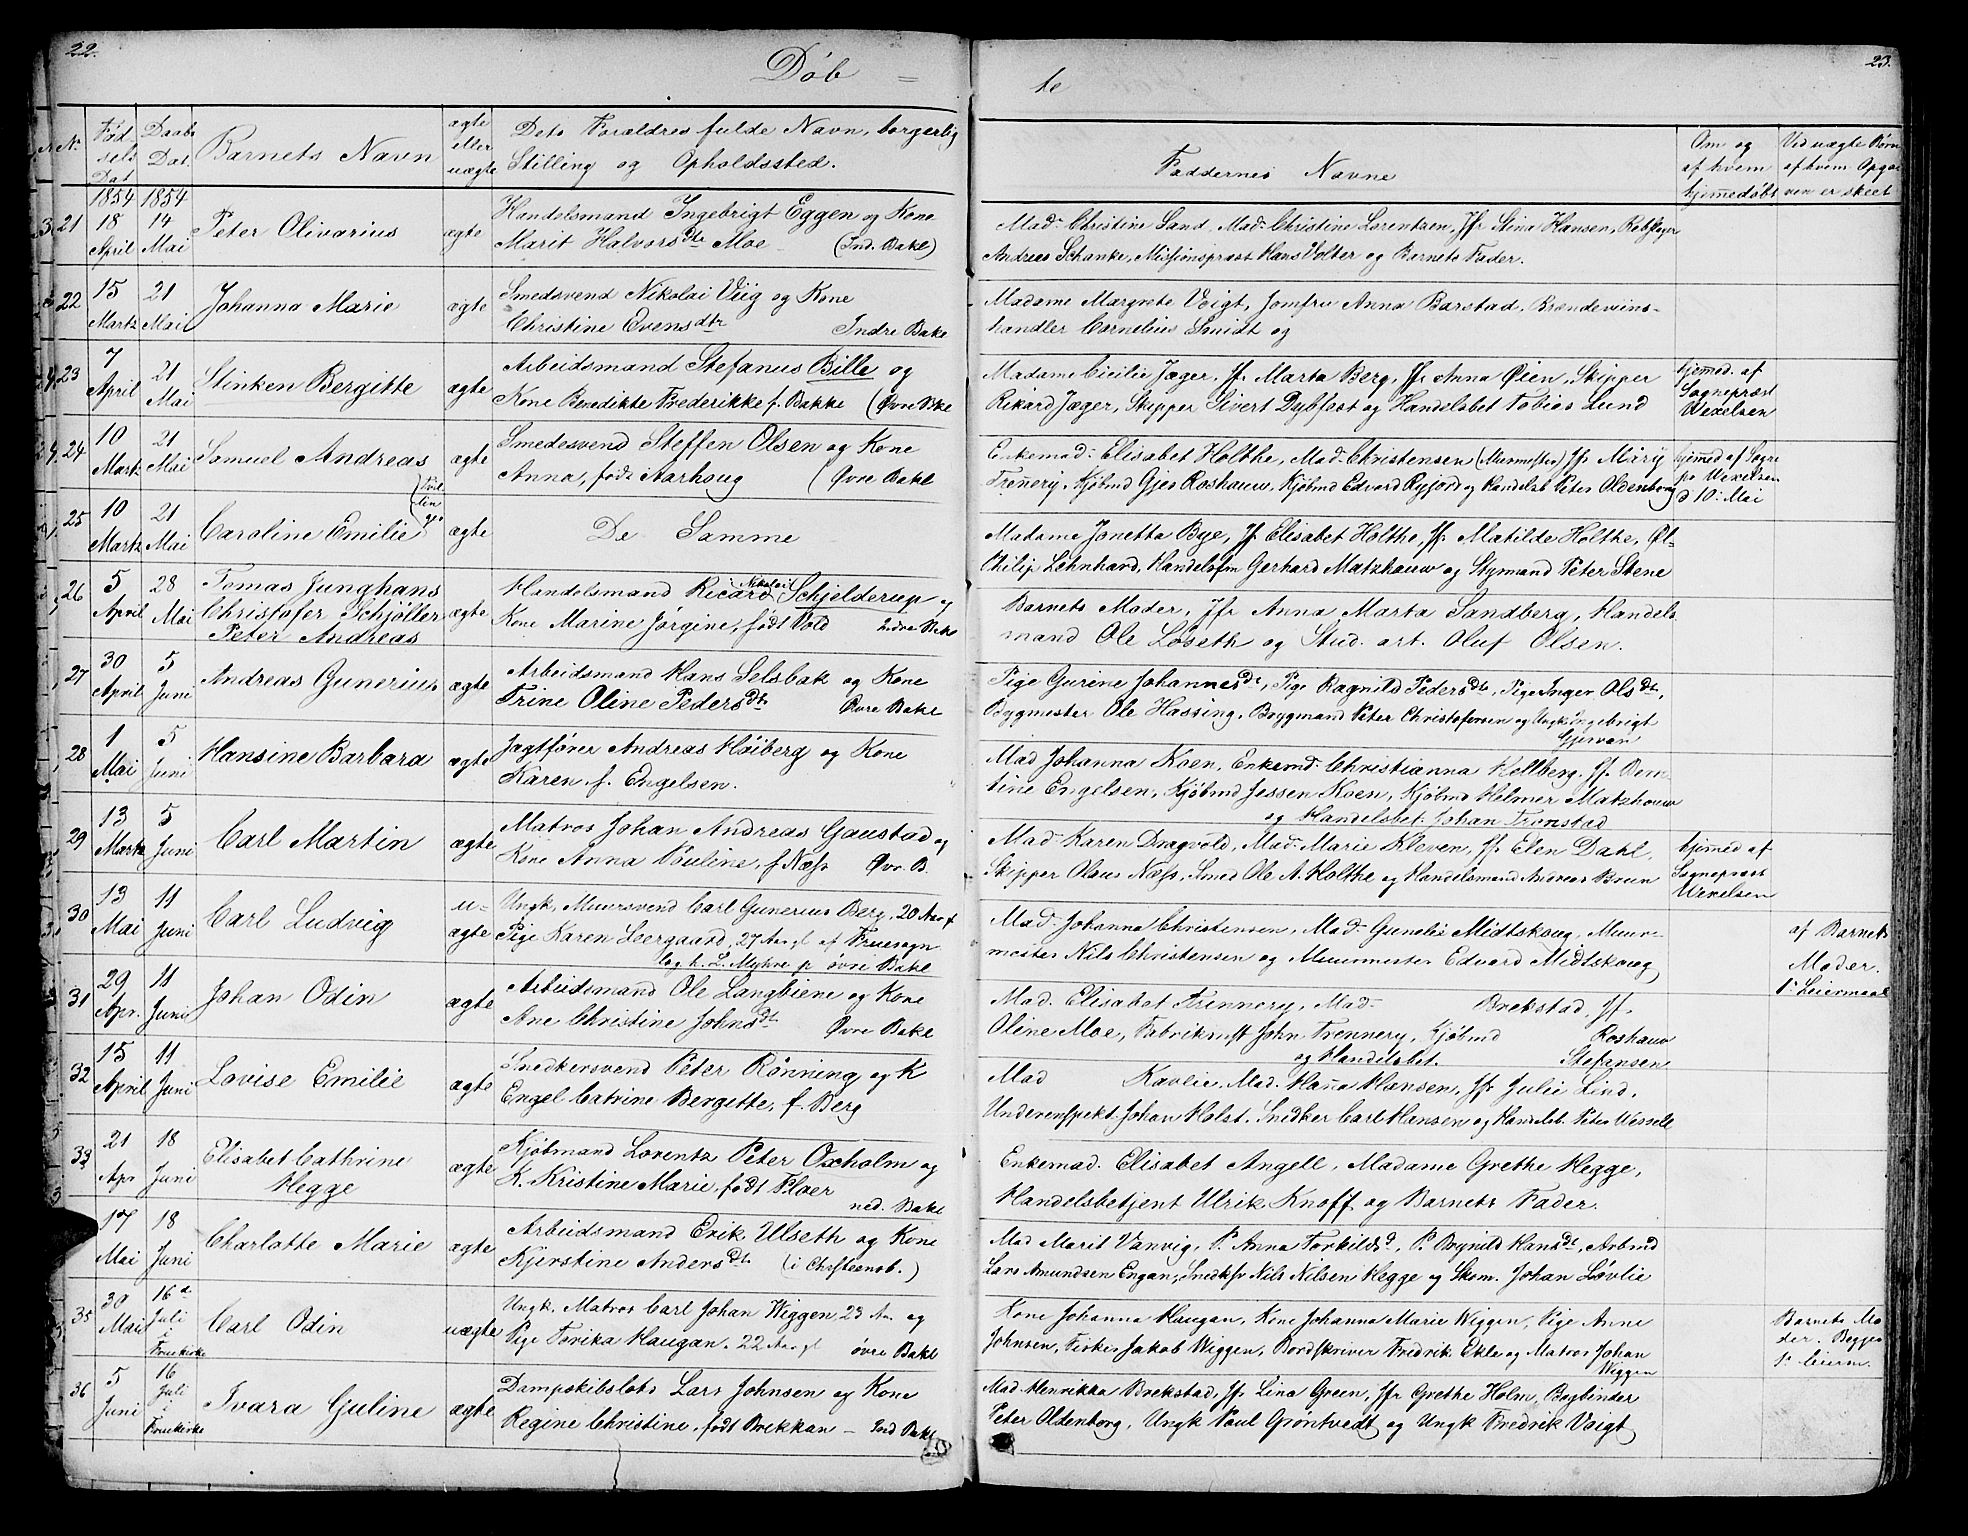 22.
Döb =
te
23.
No
Föd
sels
Dat
Daabs
Dat.
Barnets Navn
ægte
eller
uægte
Dets Forældres fulde Navn, borgerlig
Stilling og Opholdssted.
Faddernes Navne
Om og
af hvem
hjemedöbt
Vid uægte Börn
af hvem Opga
ven er skeet
1854 1854
21 18 April 14 Mai Peter Olivarius ægte
Handelsmand Ingebrigt Eggen og Kone
Marit Halvorsdtr Moe (Ind. Bakl)
Mad. Christine Sand, Mad. Christine Lorentzen, Jfr Stina Hansen, Rebslager
Andreas Schanke, Missionspræst Hans Volter og Barnets Fader.
22 15 Martz 21 Mai Johanna Marie ægte
Smedsvend Nikolai Viig og Kone
Christine Evensdtr Indre Bakl
Madame Margrete Voigt, Jomfru Anna Barstad, Brændeviins-
handler Cornelius Smidt og
23 7 April 21 Mai Stinken Bergitte ægte
Arbeidsmand Stefanus Bille og
Kone Benedikte Frederikke f. Bakke (Øvre Bke
Madame Cicilie Jæger, Jfr Marta Berg, Jfr Anna Øien, Skipper
Rikard Jæger, Skipper Sivert Dybfest og Handelsbet Tobias Lund
hjemd. af
Sognepræst
Wexelsen
24 10 Martz 21 Mai Samuel Andreas ægte
Smedesvend Steffen Olsen og Kone
Anna, födt Aarhoug (Øvre Bakl
Enkemad. Elisabet Holthe, Mad. Christensen (Muurmester) Jfr Marig
Trennery, Kjöbmd Gjeo Roshauw, Kjöbmd Edvard Ryjord og Handelsb Peter Oldenborg
hjemd af Sogne
pr Wexelsen
d 10. Mai
(Tvil
lin
ger
25 10 Martz 21 Mai Caroline Emilie ægte
De Samme
Madame Jonetta Bye, Jf. Elisabet Holthe, Jfr Matilde Holthe,
Philip Lehnhard, Handelsfm Gerhard Matzhauw og Styrmand Peter Stene
26 5 April 28 Mai Tomas Junghans
Christofer Schjölter
Peter Andreas ægte
Handelsmand Ricard Nikolai Schjelderup og
Kone Marine Jörgine, födt Vold Indre Bakl
Barnets Moder, Jfr Anna Marta Sandberg, Handels
mand Ole Löseth og Stud. art. Oluf Olsen.
27 30 April 5 Juni Andreas Gunerius ægte
Arbeidsmand Hans Selsbak og Kone
Trine Oline Pedersdt Øvre Bakl
Pige Gurine Johannesdt, Pige Ragnild Pedersdt, Pige Inger Olsdt,
Bygmester Ole Hassing, Brygmand Peter Christofersen og Ungk Ingebrigt
Gjervan
28 1 Mai 5 Juni Hansine Barbara ægte
Jagtförer Andreas Höiberg og Kone
Karen f. Engelsen.
Mad Johanna Koen, Enkemd. Christianna Kellberg, Jf. Bern-
tine Engelsen, Kjöbmd Jessen Koen, Kjöbmd Helmer Matzhauw
og Handelsbet Johan Tronstad
29 13 Martz 5 Juni Carl Martin ægte
Matros Johan Andreas Gaustad og
Kone Anna Pouline, f Næss Øvr. B.
Mad. Karen Dragvold, Mad. Marie Kleven, Jfr Elen Dahl,
Skipper Olaus Næss, Smed Ole A. Holthe og Handelsmand Andreas Bruun
hjemd af
Sognepræst
Wexelsen
30 13 Mai 11 Juni Carl Ludvig u-ægte
Ungk, Muursvend Carl Gunerius Berg, 20 Aar g
Pige Karen Leergaard, 27 Aar gl af Fruesogn
log h. L. Myhre p øvre Bakl
Mad. Johanna Christensen, Mad. Gunelie Midtskoug, Muur-
mester Nils Christensen og Muurmester Edvard Midtskoug
af Barnets
Moder.
1s Leiermaal
31 29 Apr. 11 Juni Johan Odin ægte
Arbeidsmand Ole Langbiene og Kone
Ane Christine Johnsdt Øvre Bakl
Mad. Elisabet Trennery, Mad. Brekstad, Jf.
Oline Moe, John Trennery, Kjöbmd Roshauw
og Handelsbet. Stefansen
32 15 April 11 Juni Lovise Emilie ægte
Snedkersvend Peter Rönning og K
Engel Catrine Bergitte, f. Berg
Mad Kavlie, Mad. Hana Hansen, Jfr Julie Lind,
Johan Holst, Snedker Carl Hansen og Handelsb. Peter Wessell
33 21 Apr 18 Juni Elisabet Cathrine
Hegge ægte
Kjöbmand Lorentz Peter Oxholm og
K. Kristine Marie, födt Ploer
ned. Bakl
Enkemad. Elisabet Angell, Madame Grethe Hegge,
Handelsbetjent Ulrik Knoff og Barnets Fader.
17 Mai 18 Juni Charlotte Marie ægte
Arbeidsmand Erik Ulseth og Kone
Kjerstine Andersdt.
Mad Marit Vanvig, P. Anna Torkildsd, P. Brynild Hansdt, Arbmd
Lars Amundsen Engan, Snedkr Nils Nilsen Hegge og Skom. Johan Lövlie
35 30 Mai 16de Juli i Fruekirke Carl Odin uægte
Ungk. Matros Carl Johan Wiggen, 23 Aar og
Pige Torika Haugan, 22 Aar gl øvre Bakl
Kone Johanna Haugan, Kone Johanna Marie Wiggen, Pige Anne
Johnsen, Fisker Jakob Wiggen, Bordskriver Fredrik Ekle og Matros Johan
Wiggen
Barnets Mo
der. Begges
1s leierm.
36 5 Juni 16 Juli i Fruekirke Ivara Guline ægte
Dampskibslots Lars Johnsen og Kone
Regine Christine, födt Brekkan - Ind Bakl
Mad. Henrikka Brekstad, Jfr Lina Green, Jfr Grethe Holm,
Peter Oldenborg, Ungk Paul Gröntvedt og Ungk Fredrik Voigt